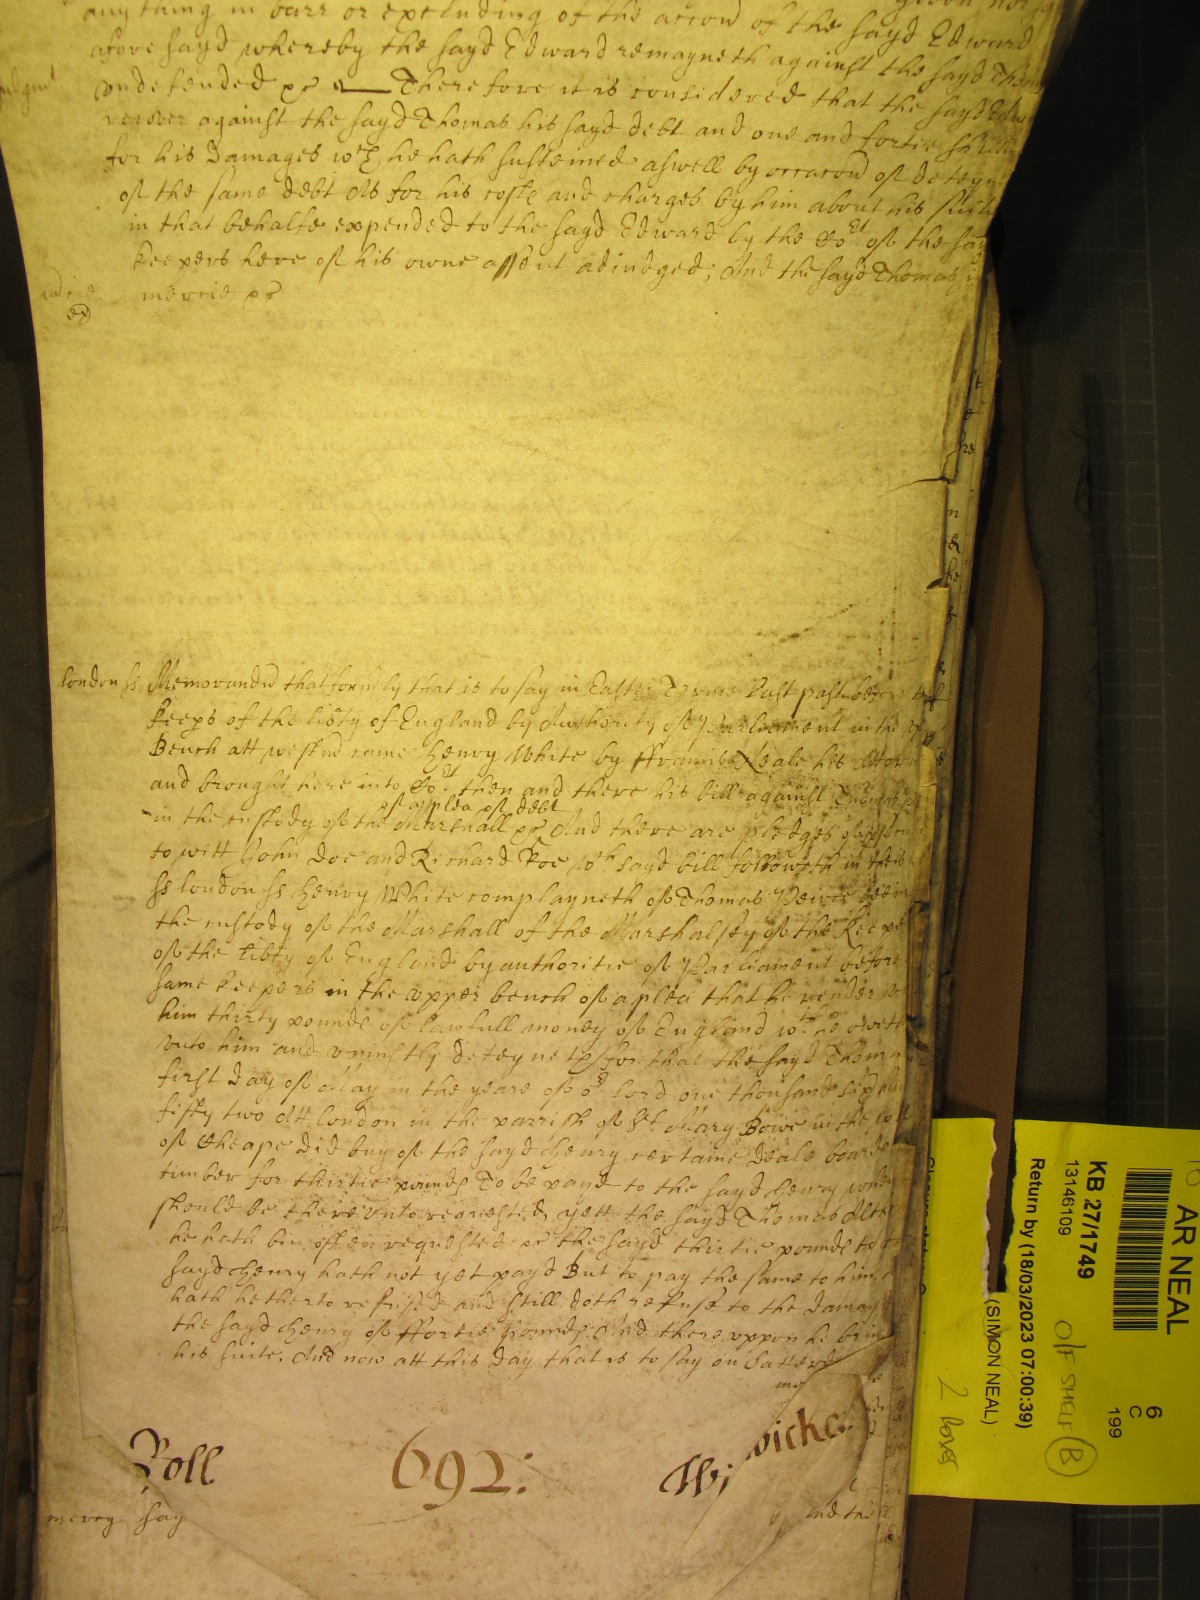 any thing in barr or excluding of the accon of the sayd Edward
afore sayd whereby the sayd Edward remayneth against the sayd Thom
undefended &c Therefore it is considered that the sayd Edw
recover against the sayd Thomas his sayd debt and one and fortie shill
for his Damages wch he hath susteined aswell by occacon of deteyn
of the same debt As for his costs and charges by him about his suite
in that behalfe expended to the sayd Edward by the Cort of the say
keepers here of his owne assent adiudged, And the sayd Thomas in
mercie &c
London ss Memorandum that formerly that is to say in Easter Terme last past before the
keeps of the libty of England by Authority of Parliament in the upp
Bench att westmr came Henry White by ffrancis Neale his Attorn
and brought here into Cort then and there his bill against Thomas
of a plea of debt
in the custody of the Marshall &c And there are pledges of
to witt John Doe and Richard Roe wch sayd bill followeth in theis
ss London ss Henry White complayneth of Thomas Peirce being
the custody of the Marshall of the Marshalsey of the keepe
of the libty of England by authoritie of Parliament before
same keepers in the upper bench of a plea that he render
him thirty pounds of lawfull money of England wch he oweth
unto him and uniustly deteyneth for that the sayd Thomas
first day of May in the yeare of or Lord one thousand six hun
fifty two Att London in the parrish of St Mary Bowe in the
of Cheape did buy of the sayd Henry certaine deale boards
timber for thirtie pounds To be payd to the sayd Henry when
should be thereunto requested, yett the sayd Thomas Altho
he hath bin often requested &c the sayd thirtie pounds to
sayd Henry hath not yet payd But to pay the same to him
hath hetherto refused and still doth refuse to the damag
the sayd Henry of ffortie pounds And thereuppon he bring
his suite, And now att this day that is to say on Satterd
Roll 692: Wi wicke
mercy say and the
AR NEAL
6
C
199
KB 27/1749
13146109
O/F SHELF B
Return by (18/03/2023 07:00:39)
(SIMON NEAL)
2 boxes